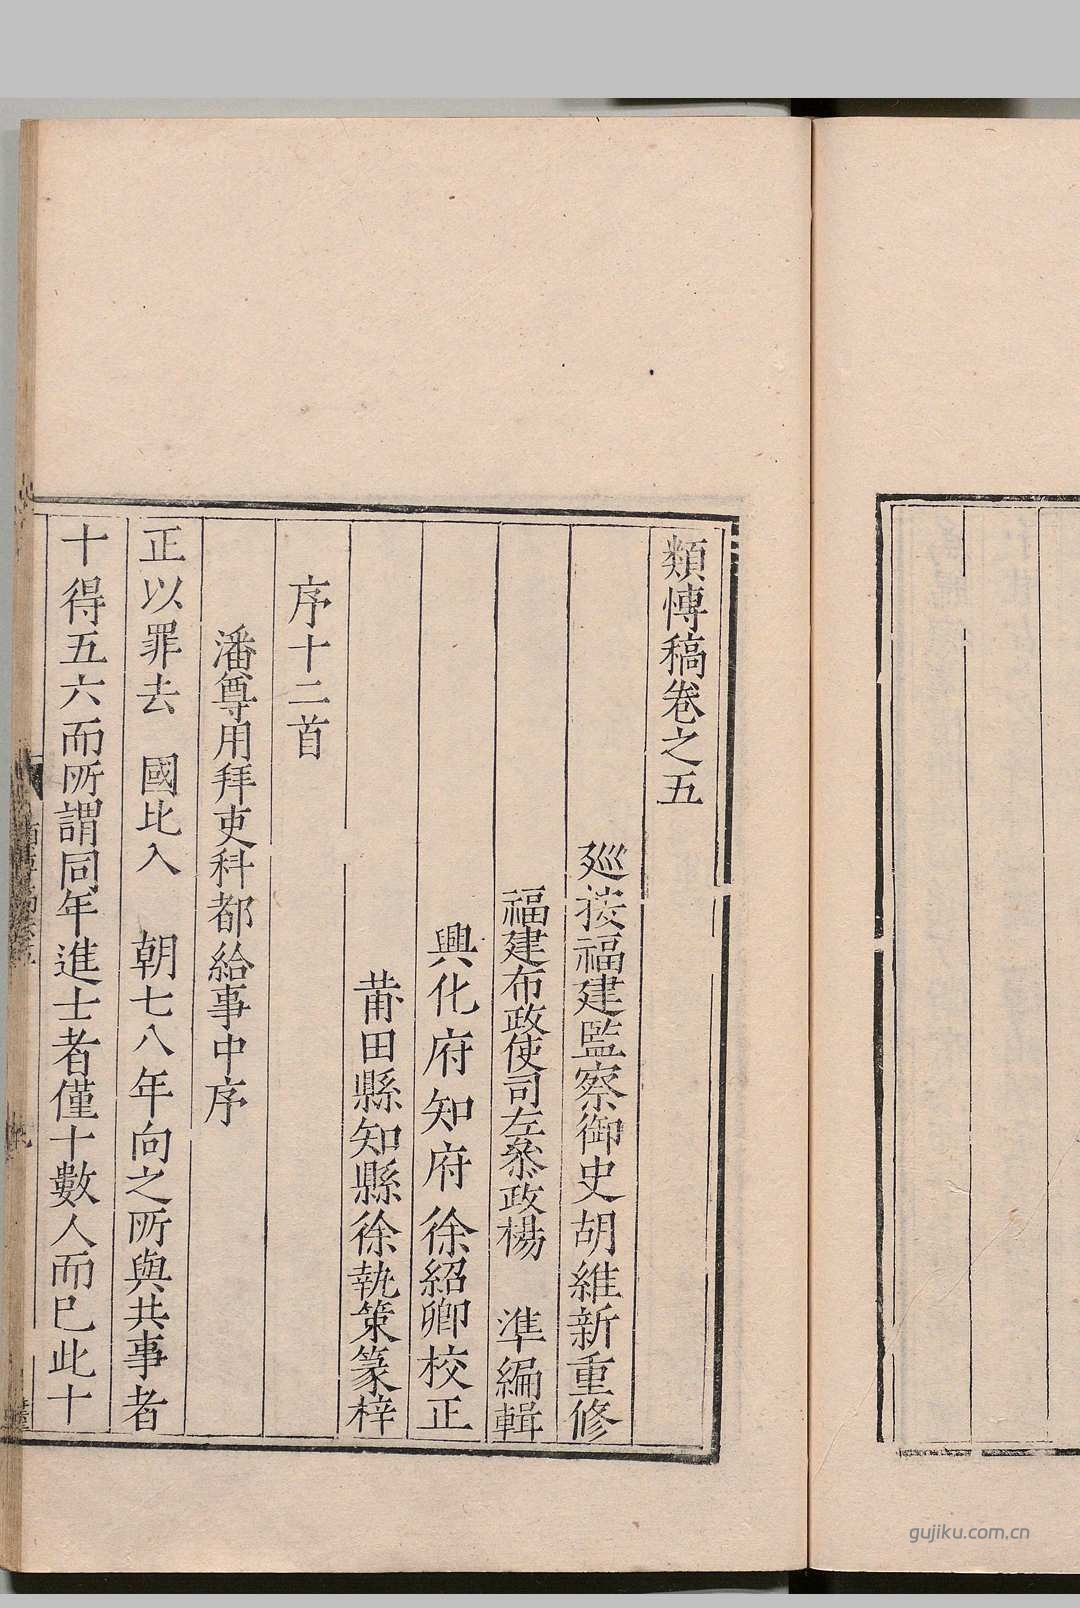 類愽稿卷之五
廵按福建監察御史胡維新重修
福建布政使司左叅政楊　準編輯
興化府知府徐紹卿校正
莆田縣知縣徐執策篆梓
序十二首
潘尊用拜吏科都給事中序
正以罪去　國比入　朝七八年向之所與共事者
十得五六而所謂同年進士者僅十數人而巳此十
gujiku.com.cn